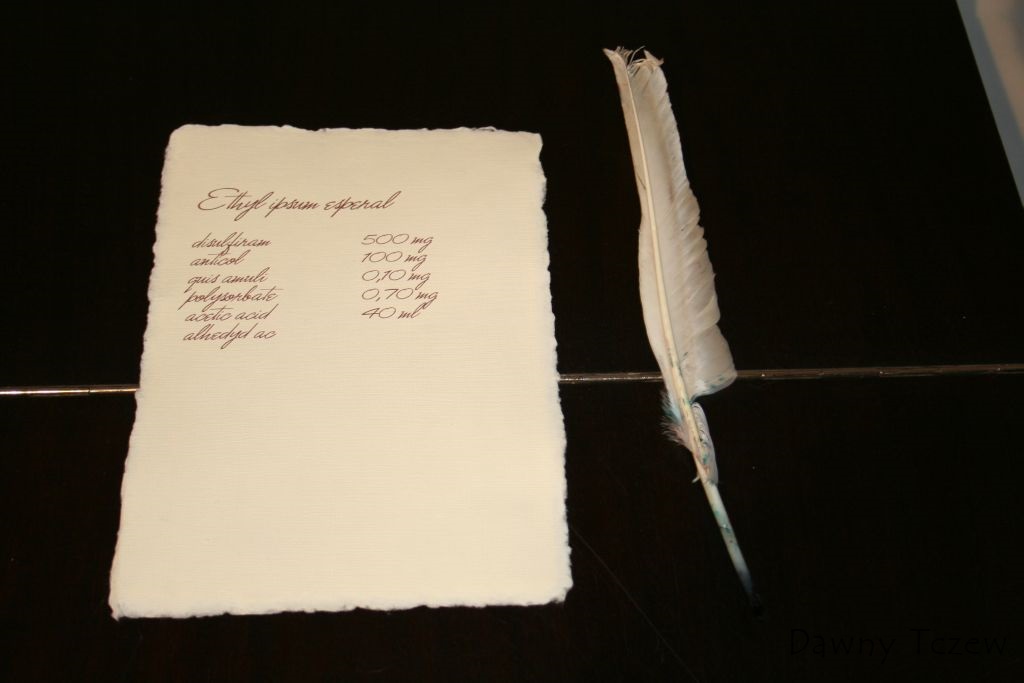 Ethyl ipsum esperal
disulfiram 500 mg
anticol 100 mg
quis amuli 0,10 mg
polysorbate 0,70 mg
acetic acid 40 ml
alhedyd ac
Dawny Tczew